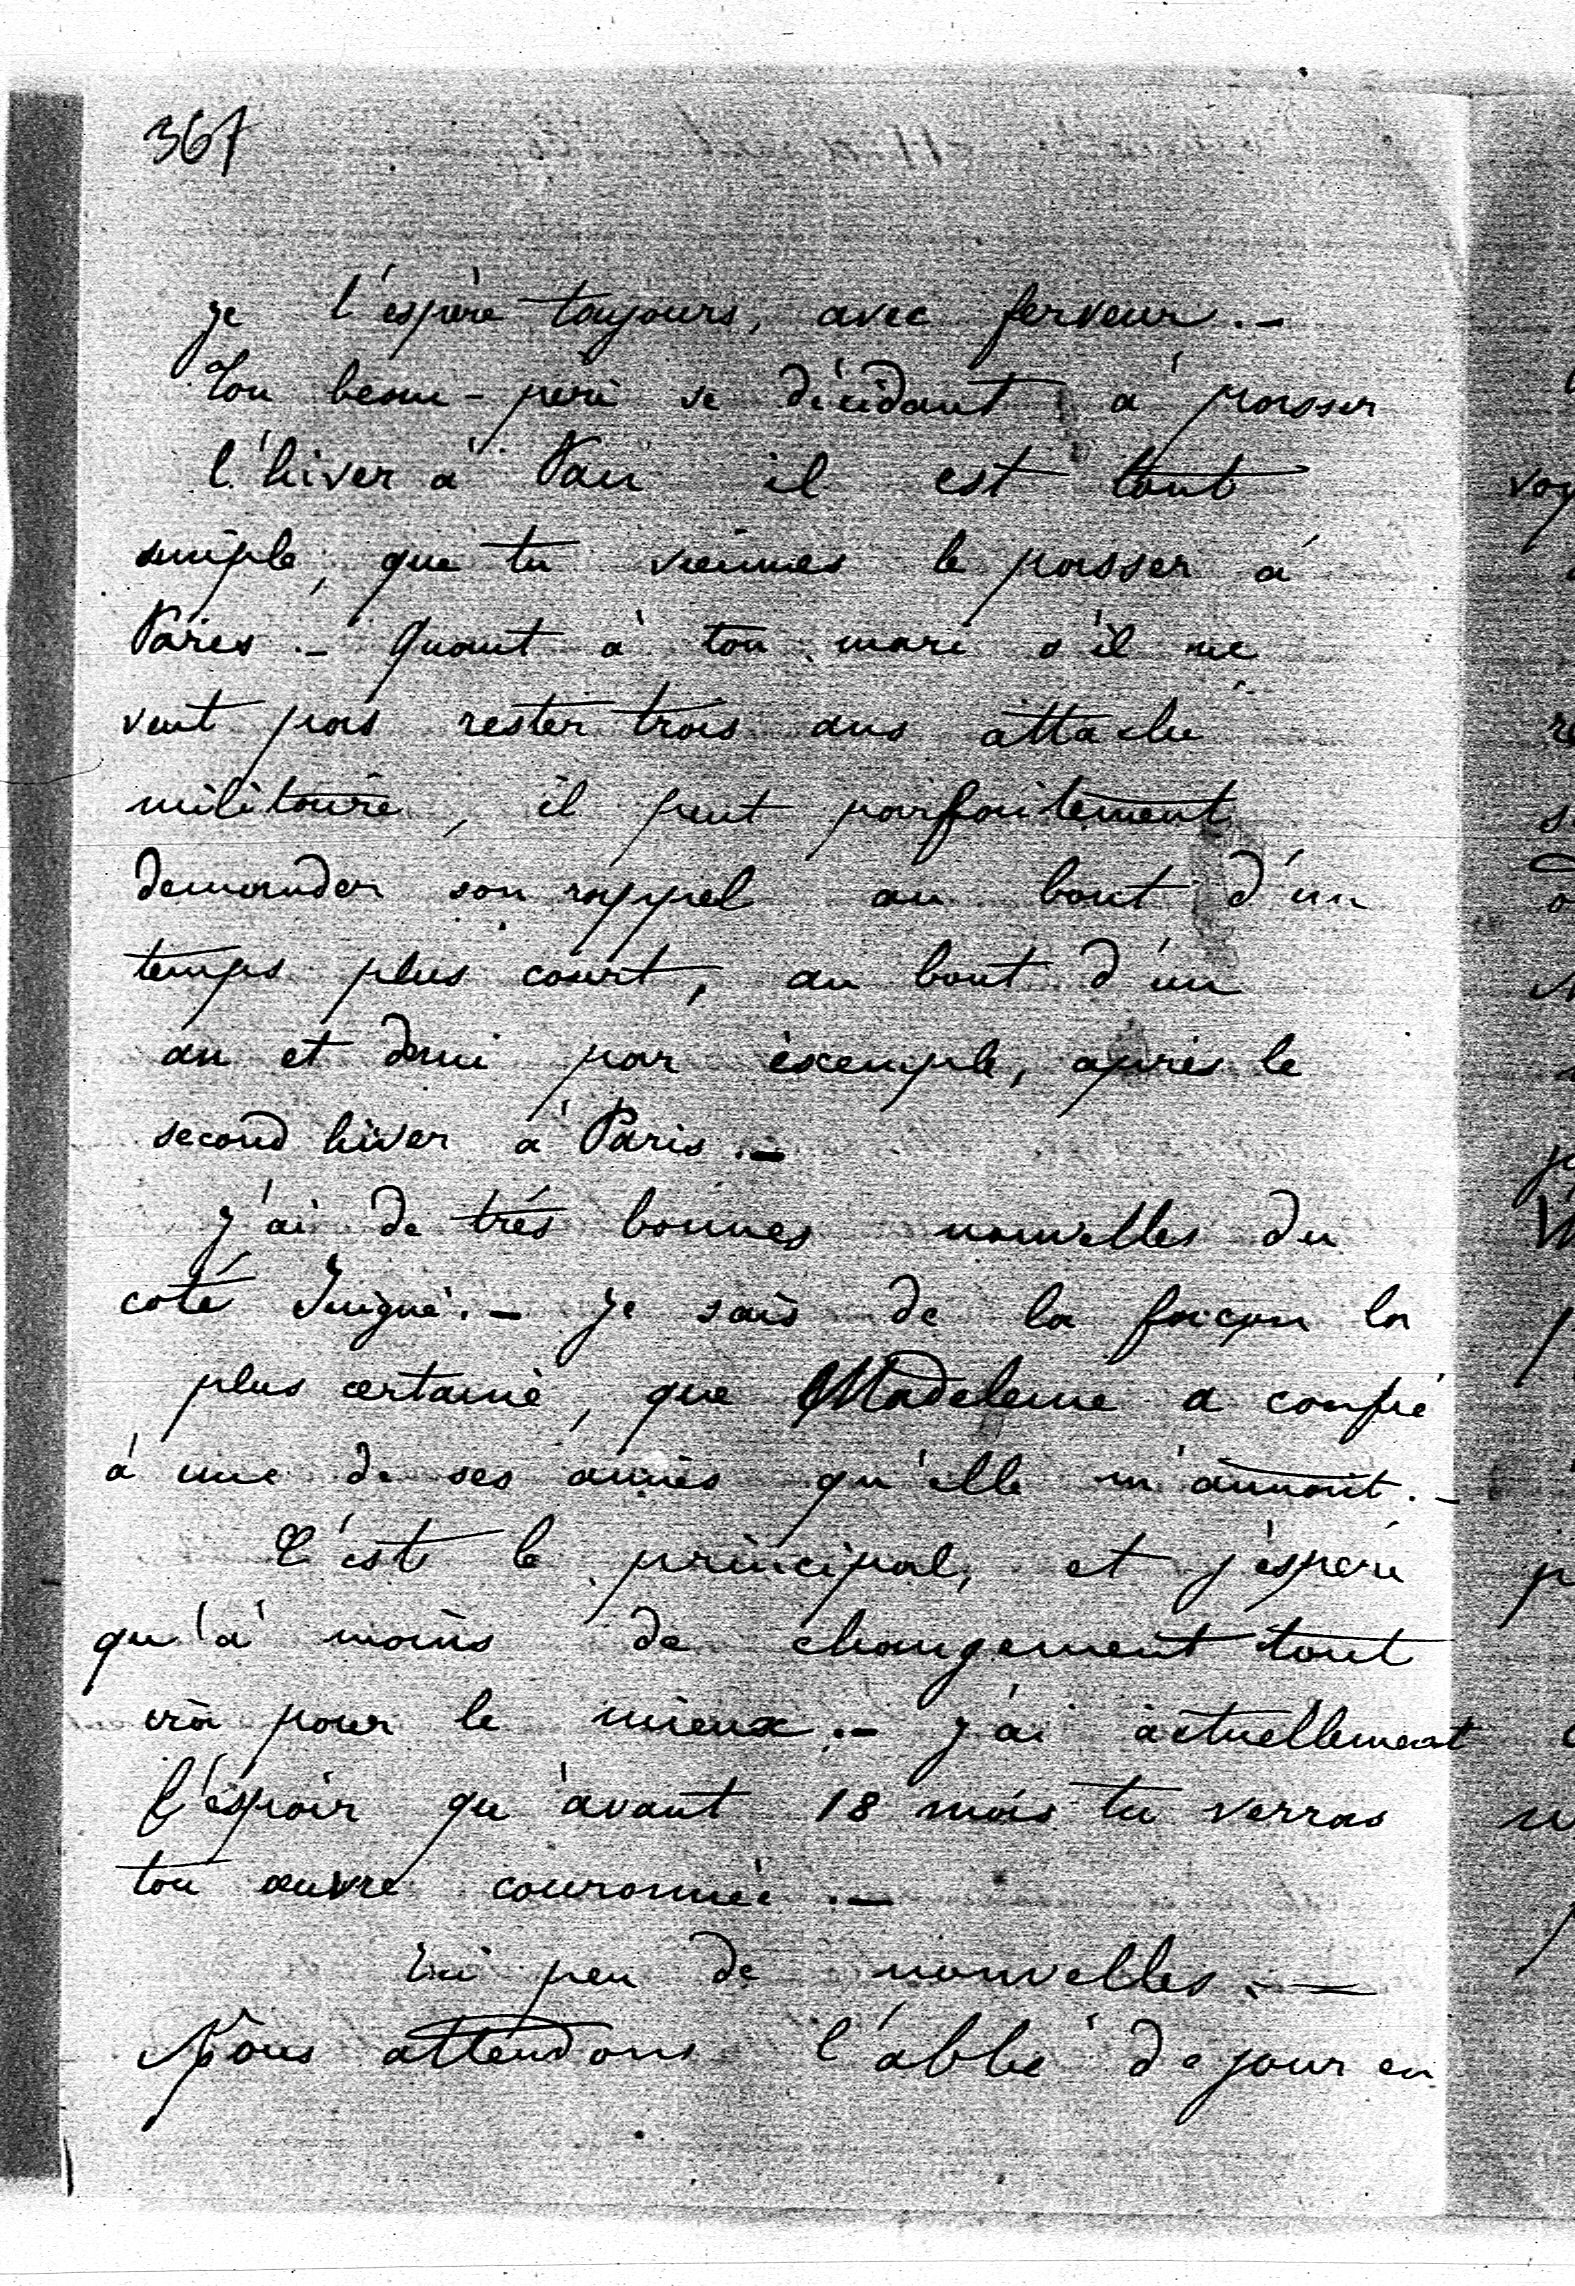 367
je l'espère toujours, avec ferveur. –
Ton beau-père se décidant à passer
l'hiver à Pau il est tout
simple, que tu viennes le passer à
Paris. – Quant à ton mari s'il ne
veut pas rester trois ans attaché
militaire, il peut parfaitement
demander son rappel au bout d'un
temps plus court, au bout d'un
an et demi par exemple, après le
second hiver à Paris. –
J'ai de très bonnes nouvelles du
coté Juigné. – Je sais de la façon la
plus certaine, que Madeleine a confié
à une de ses amies qu'elle m'aimait. –
C'est le principal, et j'espère
qu'à moins de changement tout
ira pour le mieux. – J'ai actuellement
l'espoir qu'avant 18 mois tu verras
ton œuvre couronnée. –
Ici peu de nouvelles. –
Nous attendons l'abbé de jour en